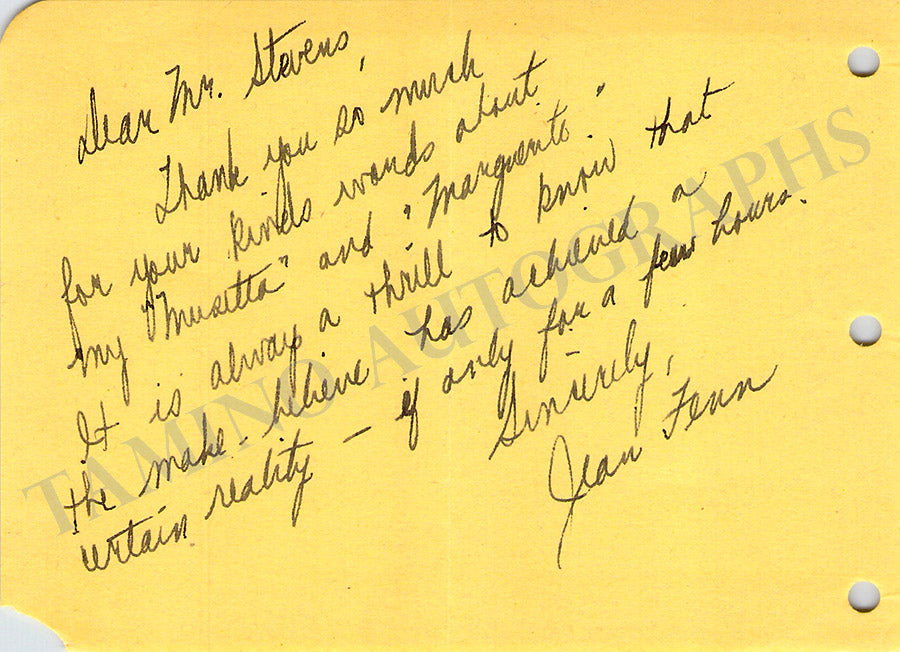 Dear Mr. Stevens,
Thank you so much
for your kinds words about
my "Musetta" and "Marguerite."
It is always a thrill to know that
the make-believe has achieved a
certain reality – if only for a few hours.
Sincerely,
Jean Fenn
TAMINO AUTOGRAPHS